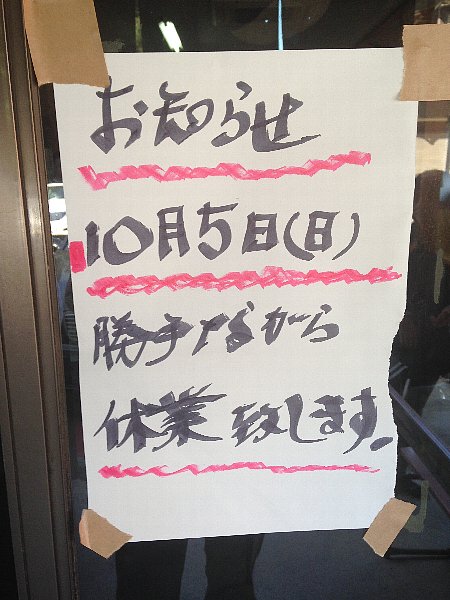 お知らせ
10月5日(日)
勝手ながら
休業致します.